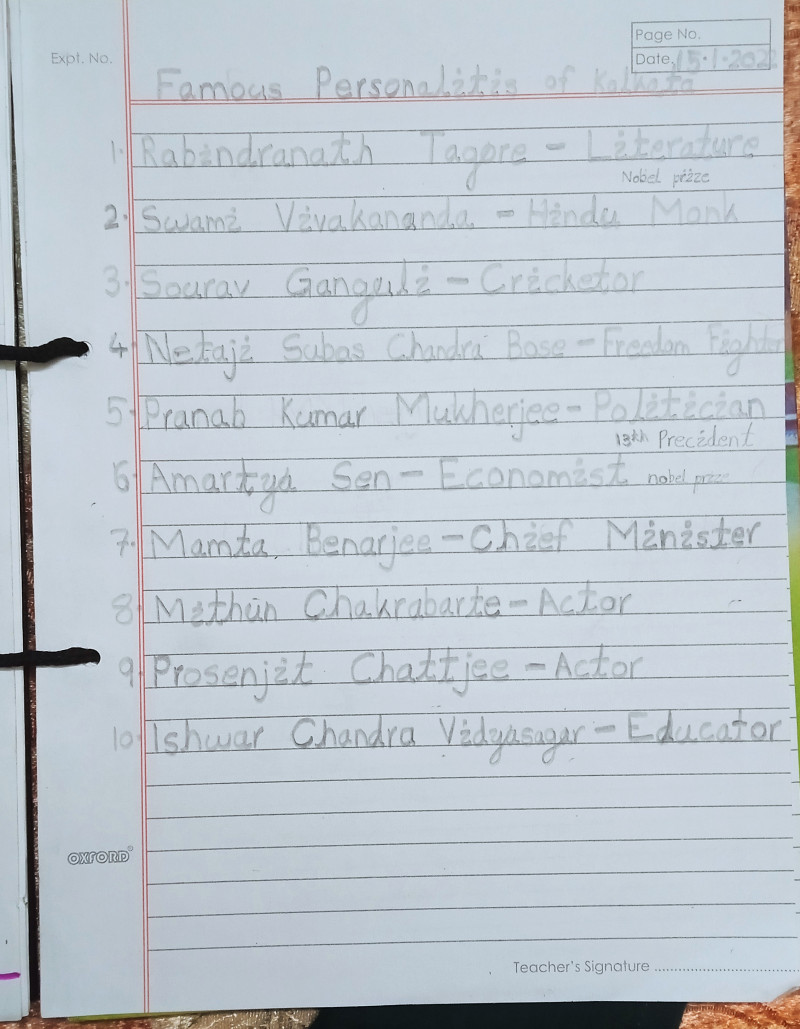 Page No.
Expt. No.
Date 15.1.202
Famous Personalitis of Kolkata
1. Rabindranath Tagore - Literature
Nobel priize
2. Swami Vivakananda - Hindu Monk
3. Sourav Ganguli - Cricketor
4. Netaji Subas Chandra Bose - Freedom Fighter
5. Pranab Kumar Mukherjee - Politician
13th Precident
6. Amartya Sen - Economist nobel prize
7. Mamta Benarjee - Chief Minister
8. Mithun Chakrabarte - Actor
9. Prosenjit Chattjee - Actor
10. Ishwar Chandra Vidyasagar - Educator
OXFORD
Teacher's Signature